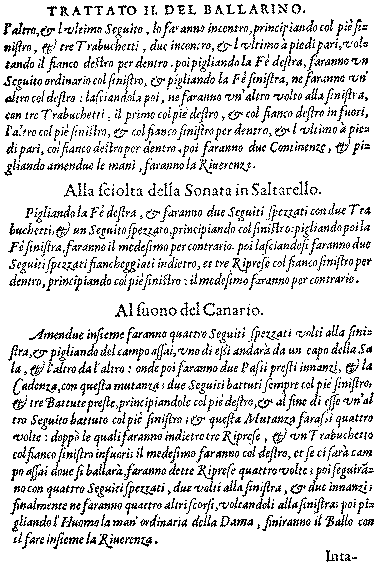 TRATTATO II. DEL BALLARINO.
l'altro, & l'vltimo Seguito, lo faranno incontro, principiando col piè si-
nistro, & tre Trabuchetti, due incontro, & l'vltimo à piedi pari, vol-
tando il fianco destro per dentro. poi pigliando la Fè destra, faranno vn
Seguito ordinario col sinistro, & pigliando la Fè sinistra, ne faranno vn'
altro col destro: lasciandola poi, ne faranno vn'altro volto alla sinistra,
con tre Trabuchetti: il primo col piè destro, & col fianco destro in fuori,
l'altro col piè sinistro, & col fianco sinistro per dentro, & l'vltimo à pie
di pari, col fianco destro per dentro. poi faranno due Continenze, & pi-
gliando amendue le mani, faranno la Riuerenza.
Alla sciolta della Sonata in Saltarello.
Pigliando la Fè destra, & faranno due Seguiti spezzati con due Tra
buchetti, & un Seguito spezzato, principiando col sinistro: pigliando poi la
Fè sinistra, faranno il medesimo per contrario. poi lasciandosi faranno due
Seguiti spezzati fiancheggiati indietro, et tre Riprese col fianco sinistro per
dentro, principiando col piè sinistro: il medesimo faranno per contrario.
Al suono del Canario.
Amendue insieme faranno quattro Seguiti spezzati volti alla sini-
stra, & pigliando del campo assai, vno di essi andarà da un capo della Sa
la, & l'altro da l'altro: onde poi faranno due Passi presti innanzi, & la
Cadenza, con questa mutanza: due Seguiti battuti sempre col piè sinistro,
& tre Battute preste, principiandole col piè destro, & al fine di esse vn'al
tro Seguito battuto col piè sinistro; & questa Mutanza farassi quattro
volte: doppò le quali faranno indietro tre Riprese, & vn Trabuchetto
col fianco sinistro infuori: il medesimo faranno col destro, et se ci sarà cam
po assai doue si ballarà, faranno dette Riprese quattro volte; poi seguirãn
no con quattro Seguiti spezzati, due volti alla sinistra, & due innanzi;
finalmente ne faranno quattro altri scorsi, voltandoli alla sinistra: poi pi-
gliando l'Huomo la man' ordinaria della Dama, finiranno il Ballo con
il fare insieme la Riuerenza.
Inta-